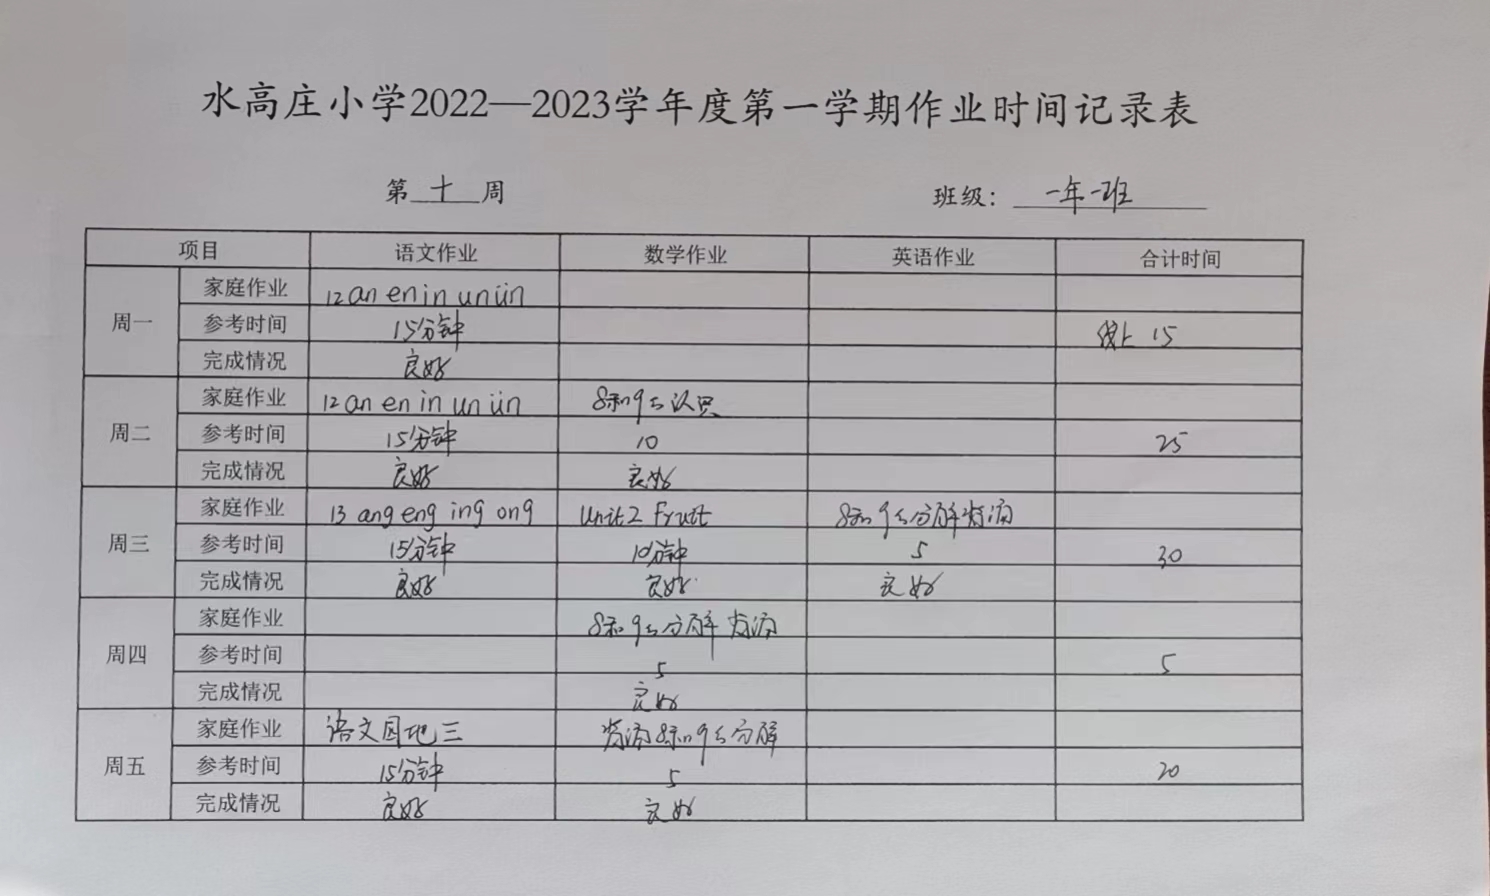 水高庄小学2022—2023学年度第一学期作业时间记录表
第 十 周 班级： 一年一班
项目 语文作业 数学作业 英语作业 合计时间
周一
家庭作业 12 an en in un ün
参考时间 15分钟 线上 15
完成情况 良好
周二
家庭作业 12 an en in un ün 8和9的认识
参考时间 15分钟 10 25
完成情况 良好 良好
周三
家庭作业 13 ang eng ing ong Unit2 Fruit 8和9的分解背诵
参考时间 15分钟 10分钟 5 30
完成情况 良好 良好 良好
周四
家庭作业 8和9的分解 背诵
参考时间 5 5
完成情况 良好
周五
家庭作业 语文园地三 背诵8和9的分解
参考时间 15分钟 5 20
完成情况 良好 良好